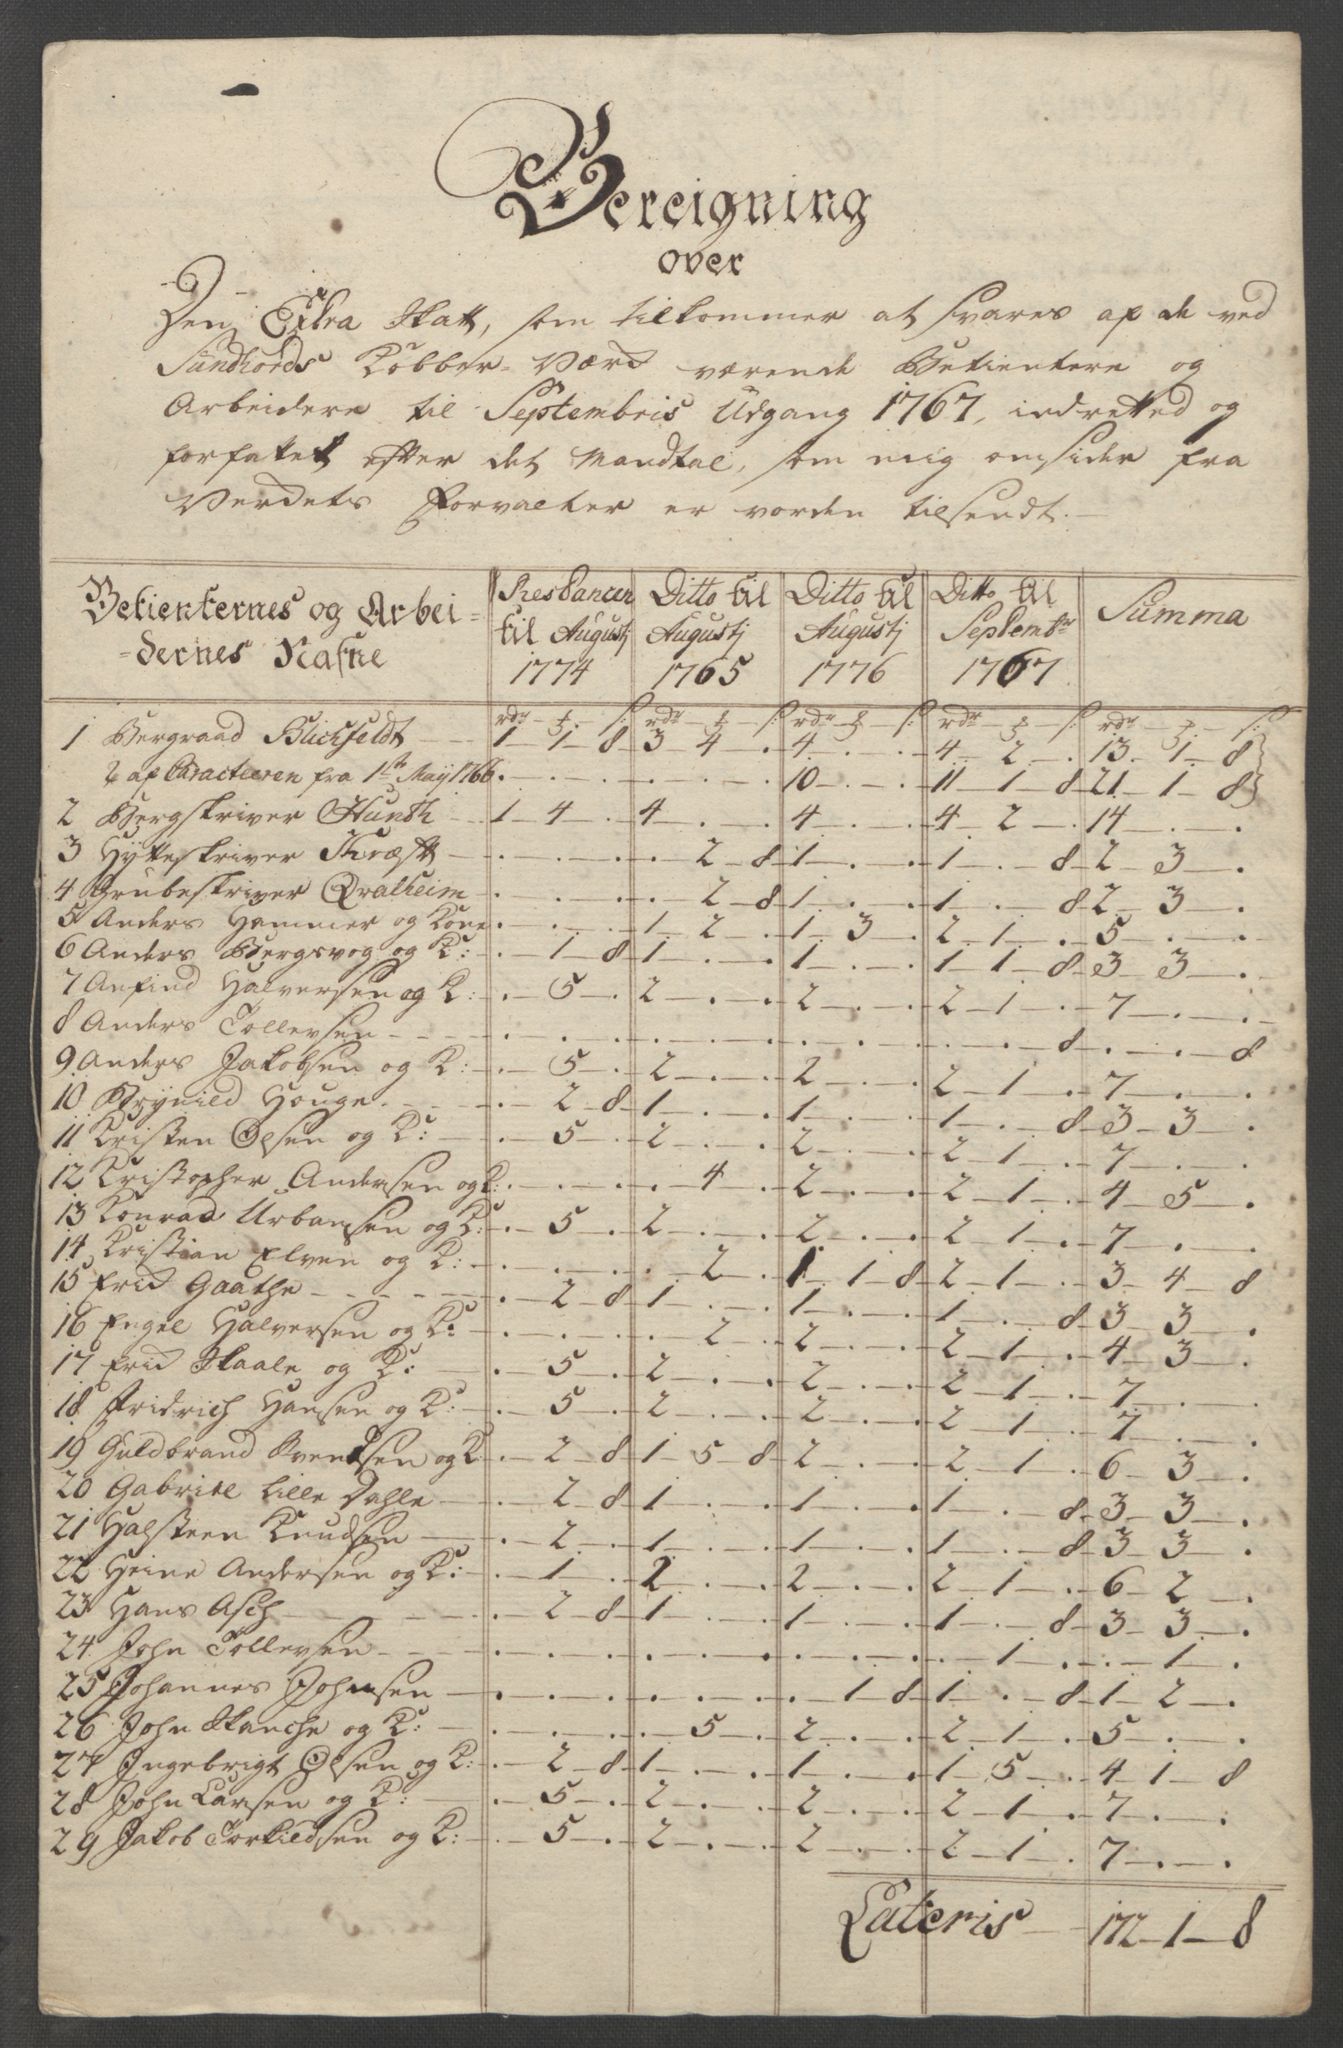 Bereigning
over
Den Extra Skatt, som tilkommer at svares af de ved
Sundhords Kobber-Værk værende Betientere og
Arbeidere til Septembris Udgang 1767, indretted og
forfatet efter det Mandtal, som mig omsider fra
Verdets Forvalter er vorden tilsendt.
Betienternes og Arbei- | Restancer til Augustj 1774 | Ditto til Augustj 1765 | Ditto til Augustj 1776 | Ditto til Septembr 1767 | Summa
-dernes Nafne
rdr ß | rdr ß | rdr ß | rdr ß | rdr ß
1 Bergraad Blichfeldt 1 - 1 - 8 | 3 - 4 - . | 4 - . - . | 4 - 2 - . | 13 - 1 - 8
2 af Caracteeren fra 1ste May 1766 . - . - . | . - . - . | 10 - . - . | 11 - 1 - 8 | 21 - 1 - 8
2 Bergskriver Hunth 1 - 4 - . | 4 - . - . | 4 - . - . | 4 - 2 - . | 14 - . - .
3 Hytteskriver Thræft . - . - . | . - 2 - 8 | 1 - . - . | 1 - . - 8 | 2 - 3 - .
4 Grubeskriver Qvalheim . - . - . | . - 2 - 8 | 1 - . - . | 1 - . - 8 | 2 - 3 - .
5 Anders Hammer og Kone . - . - . | 1 - 2 - . | 1 - 3 - . | 2 - 1 - . | 5 - . - .
6 Anders Bergsvog og K: . - 1 - 8 | 1 - . - . | 1 - . - . | 1 - 1 - 8 | 3 - 3 - .
7 Anfind Halversen og K: . - 5 - . | 2 - . - . | 2 - . - . | 2 - 1 - . | 7 - . - .
8 Anders Tollevsen . - . - . | . - . - . | . - . - . | . - . - 8 | . - . - 8
9 Anders Jakobsen og K: . - 5 - . | 2 - . - . | 2 - . - . | 2 - 1 - . | 7 - . - .
10 Brynild Houge . - 2 - 8 | 1 - . - . | 1 - . - . | 1 - . - 8 | 3 - 3 - .
11 Kristen Olsen og K: . - 5 - . | 2 - . - . | 2 - . - . | 2 - 1 - . | 7 - . - .
12 Kristopher Andersen og K: . - . - . | . - 4 - . | 2 - . - . | 2 - 1 - . | 4 - 5 - .
13 Konrad Urbansen og K: . - 5 - . | 2 - . - . | 2 - . - . | 2 - 1 - . | 7 - . - .
14 Kristian Elven og K: . - . - . | . - 2 - . | 1 - 1 - 8 | 2 - 1 - . | 3 - 4 - 8
15 Erik Gaathe . - 2 - 8 | 1 - . - . | 1 - . - . | 1 - . - 8 | 3 - 3 - .
16 Engel Halversen og K: . - . - . | . - 2 - . | 2 - . - . | 2 - 1 - . | 4 - 3 - .
17 Erik Skaale og K: . - 5 - . | 2 - . - . | 2 - . - . | 2 - 1 - . | 7 - . - .
18 Fridrich Hansen og K: . - 5 - . | 2 - . - . | 2 - . - . | 2 - 1 - . | 7 - . - .
19 Guldbrand Svendsen og K . - 2 - 8 | 1 - 5 - 8 | 2 - . - . | 2 - 1 - . | 6 - 3 - .
20 Gabriel Lille Dahle . - 2 - 8 | 1 - . - . | 1 - . - . | 1 - . - 8 | 3 - 3 - .
21 Halsteen Knudsen . - 2 - . | 1 - . - . | 1 - . - . | 1 - . - 8 | 3 - 3 - .
22 Heine Andersen og K: . - 1 - . | 2 - . - . | 2 - . - . | 2 - 1 - . | 6 - 2 - .
23 Hans Asch . - 2 - 8 | 1 - . - . | 1 - . - . | 1 - . - 8 | 3 - 3 - .
24 John Tollevsen . - . - . | . - . - . | . - . - . | . - 1 - . | . - 1 - .
25 Johannes Johnsen . - . - . | . - . - . | . - 1 - 8 | 1 - . - 8 | 1 - 2 - .
26 John Skanche og K: . - . - . | . - 5 - . | 2 - . - . | 2 - 1 - . | 5 - . - .
27 Ingebrigt Olsen og K: . - 2 - 8 | 1 - . - . | 1 - . - . | 1 - 5 - . | 4 - 1 - 8
28 John Larsen og K: . - 5 - . | 2 - . - . | 2 - . - . | 2 - 1 - . | 7 - . - .
29 Jakob Torkildsen og K: . - 5 - . | 2 - . - . | 2 - . - . | 2 - 1 - . | 7 - . - .
Lateris 172 - 1 - 8